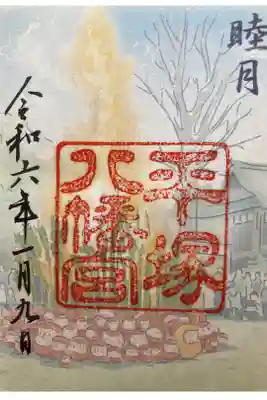 睦月
平塚
八幡宮
令和六年一月九日